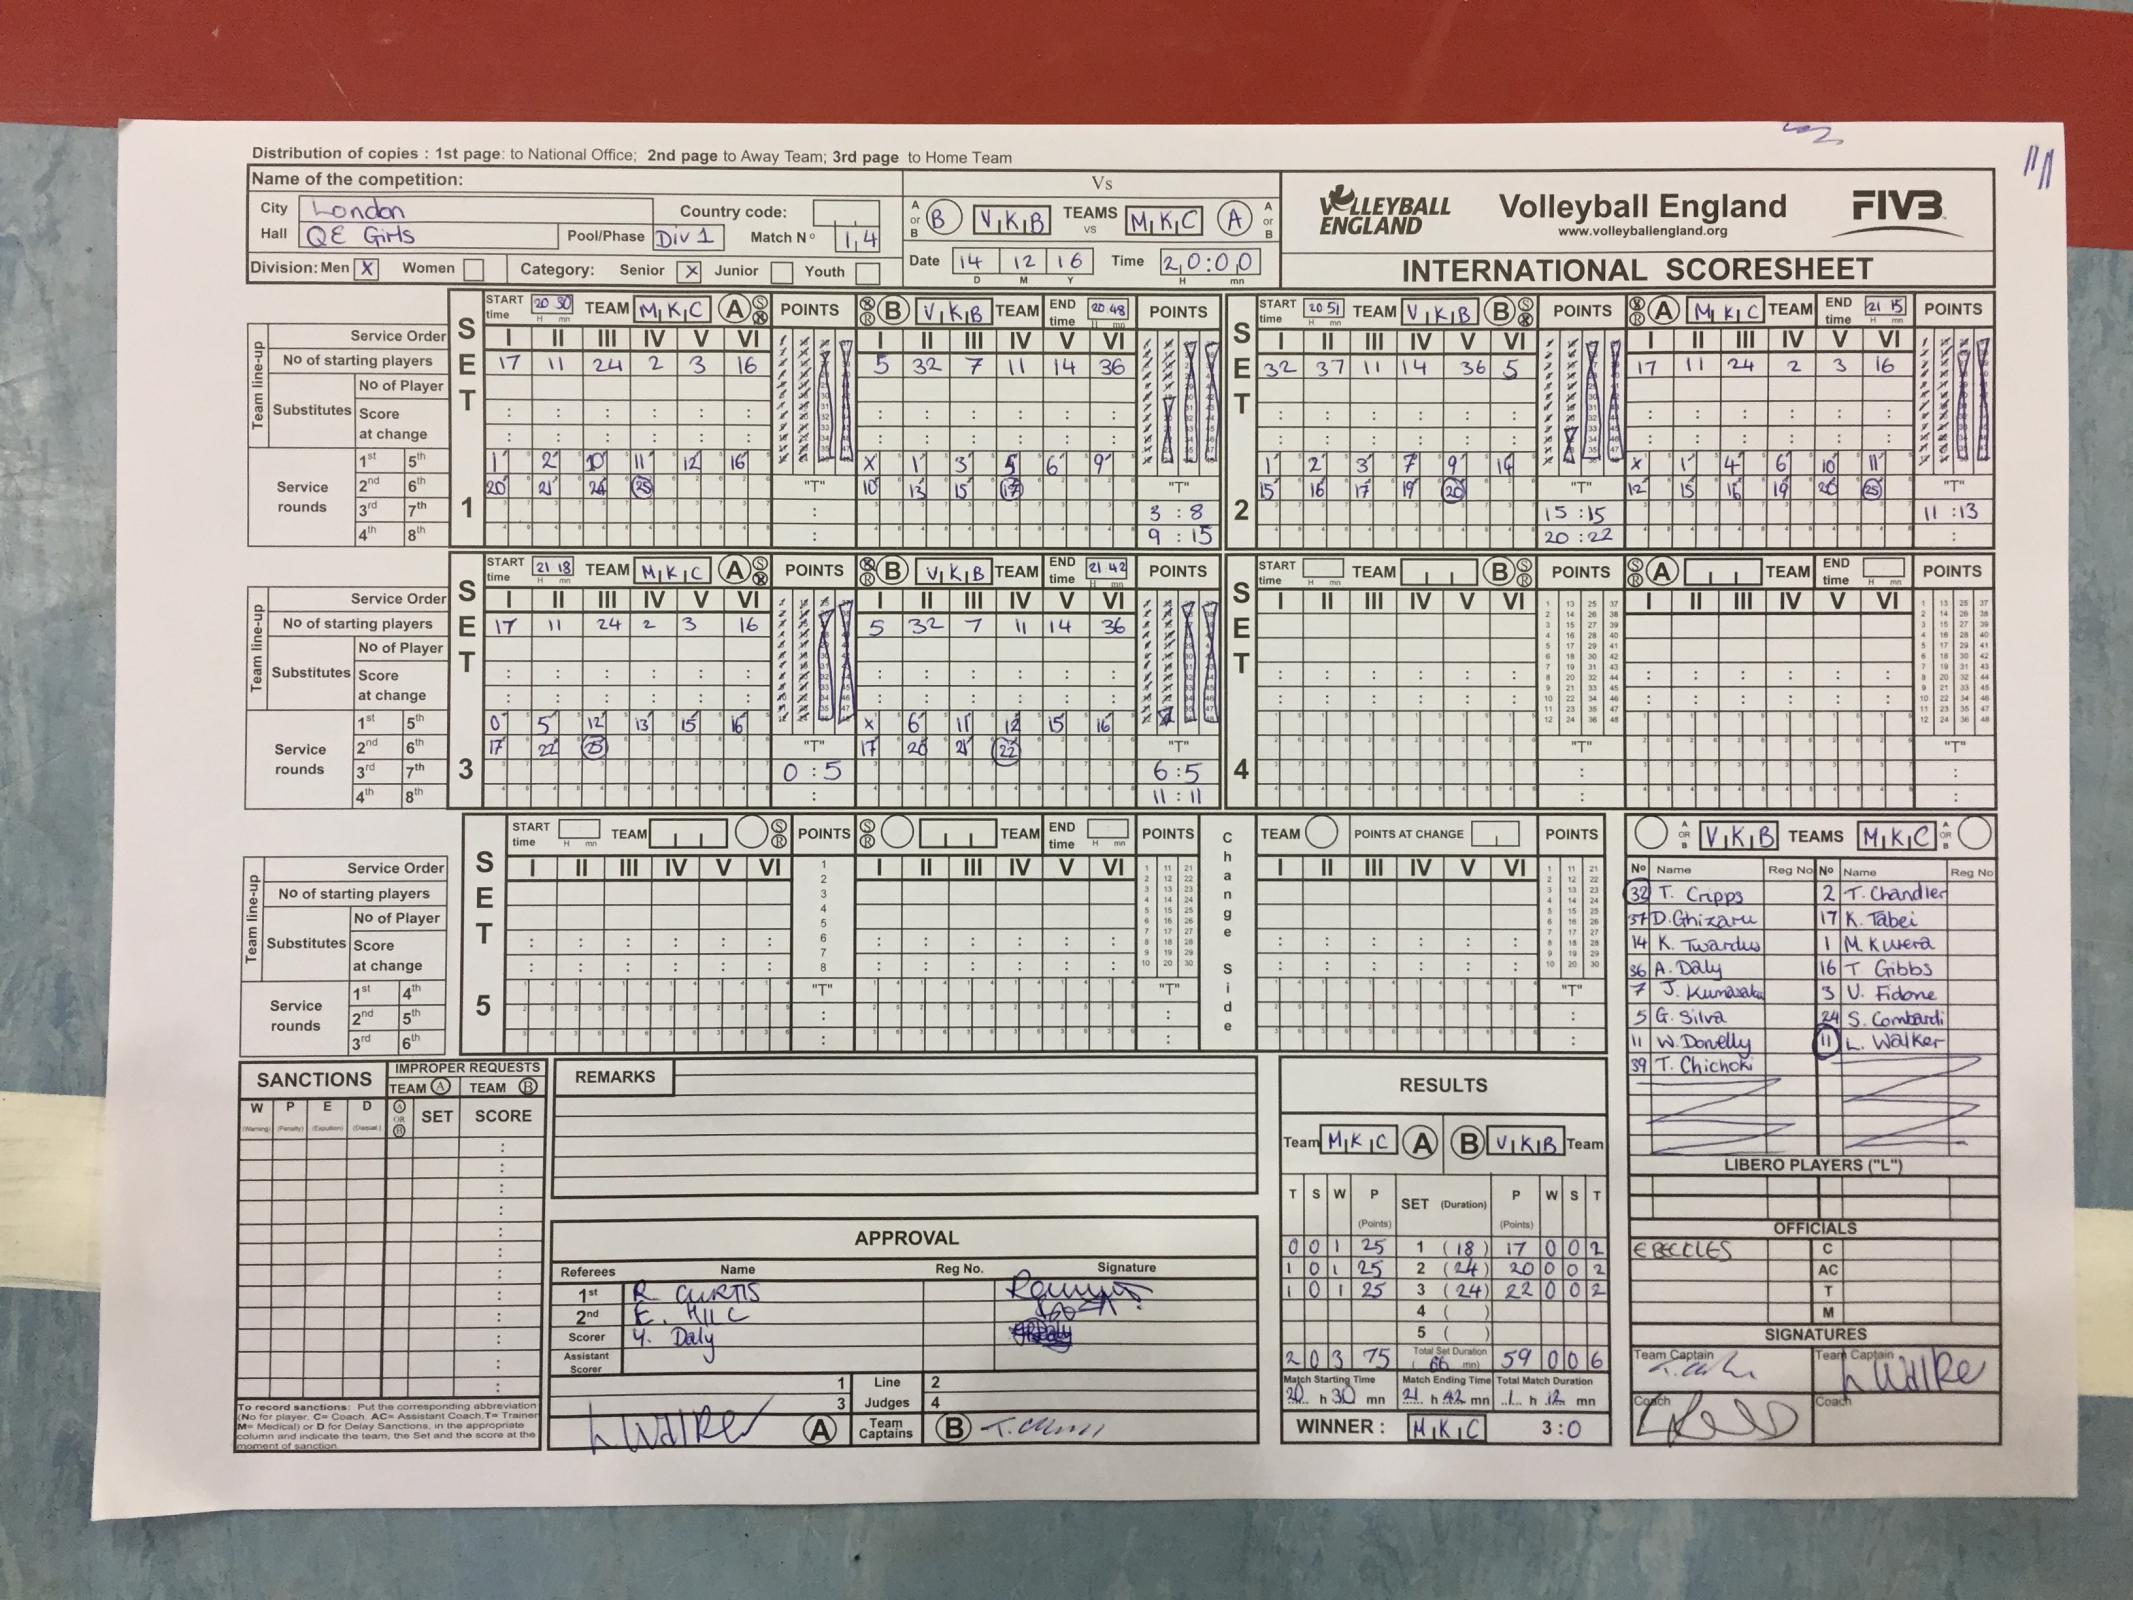 Distribution of copies : 1st page: to National Office; 2nd page to Away Team; 3rd page to Home Team
Name of the competition:
City London Country code:
Hall QE Girls Pool/Phase Div 1 Match Nº 1 4
Division: Men X Women Category: Senior X Junior Youth
Vs
A or B B V K B TEAMS vs M K C A A or B
Date 14 12 16 Time 20:00
D M Y H mn
VOLLEYBALL ENGLAND
Volleyball England
www.volleyballengland.org
FIVB
INTERNATIONAL SCORESHEET
SET 1
START time 20 30 TEAM M K C A S R POINTS S R B V K B TEAM END time 20 48 POINTS
Service Order I II III IV V VI I II III IV V VI
No of starting players 17 11 24 2 3 16 5 32 7 11 14 36
Team line-up
Substitutes No of Player
Score at change
Service rounds
1st 5th 1 2 10 11 12 16 X 1 3 5 6 9
2nd 6th 20 21 24 25 "T" 10 13 15 17 "T"
3rd 7th 3 : 8
4th 8th 9 : 15
SET 2
START time 20 51 TEAM V K B B S R POINTS S R A M K C TEAM END time 21 15 POINTS
I II III IV V VI I II III IV V VI
32 37 11 14 36 5 17 11 24 2 3 16
1 2 3 7 9 14 X 1 4 6 10 11
15 16 17 19 20 "T" 12 15 16 19 20 25 "T"
15 : 15 11 : 13
20 : 22
SET 3
START time 21 18 TEAM M K C A S R POINTS S R B V K B TEAM END time 21 42 POINTS
Service Order I II III IV V VI I II III IV V VI
No of starting players 17 11 24 2 3 16 5 32 7 11 14 36
Team line-up
Substitutes No of Player
Score at change
Service rounds
1st 5th 0 5 12 13 15 16 X 6 11 12 15 16
2nd 6th 17 22 25 "T" 17 20 21 22 "T"
3rd 7th 0 : 5 6 : 5
4th 8th 11 : 11
SET 4
START time TEAM B S R POINTS S R A TEAM END time POINTS
I II III IV V VI I II III IV V VI
"T" "T"
SET 5
START time TEAM S R POINTS S R TEAM END time POINTS Change Side TEAM POINTS AT CHANGE POINTS
Service Order I II III IV V VI I II III IV V VI I II III IV V VI
No of starting players
Team line-up
Substitutes No of Player
Score at change
Service rounds
1st 4th "T" "T" "T"
2nd 5th
3rd 6th
A OR B V K B TEAMS M K C A OR B
Nº Name Reg No Nº Name Reg No
32 T. Cripps 2 T. Chandler
37 D. Ghizaru 17 K. Tabei
14 K. Twardus 1 M. Kwera
36 A. Daly 16 T. Gibbs
7 J. Kumasaku 3 V. Fidone
5 G. Silva 24 S. Combardi
11 W. Donelly 11 L. Walker
39 T. Chichoki
LIBERO PLAYERS ("L")
OFFICIALS
E BECCLES C
AC
T
M
SIGNATURES
Team Captain Team Captain L Walke
Coach Coach
SANCTIONS
IMPROPER REQUESTS
TEAM A TEAM B
W P E D A OR B SET SCORE
(Warning) (Penalty) (Expultion) (Disqual.)
To record sanctions: Put the corresponding abbreviation
(No for player, C= Coach, AC= Assistant Coach, T= Trainer
M= Medical) or D for Delay Sanctions, in the appropriate
column and indicate the team, the Set and the score at the
moment of sanction.
REMARKS
APPROVAL
Referees Name Reg No. Signature
1st R CURTIS
2nd E. HILL
Scorer Y. Daly
Assistant Scorer
1 Line 2
3 Judges 4
L Walker A Team Captains B
RESULTS
Team M K C A B V K B Team
T S W P (Points) SET (Duration) P (Points) W S T
0 0 1 25 1 (18) 17 0 0 2
1 0 1 25 2 (24) 20 0 0 2
1 0 1 25 3 (24) 22 0 0 2
4 ( )
5 ( )
2 0 3 75 Total Set Duration (66 mn) 59 0 0 6
Match Starting Time Match Ending Time Total Match Duration
20 h 30 mn 21 h 42 mn 1 h 12 mn
WINNER : M K C 3:0